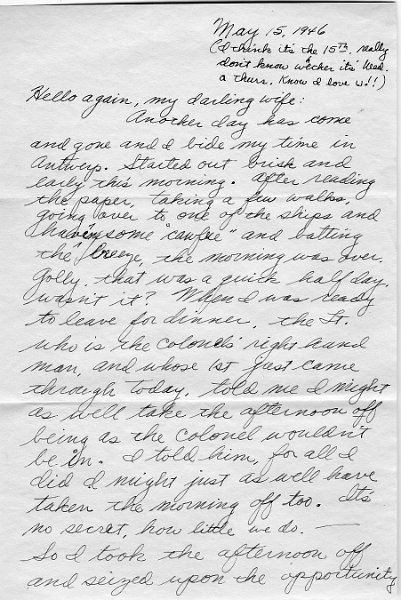 May 15, 1946
(I think it's the 15th, really
don't know wether it's Wed.
a thurs. Know I love u!!)
Hello again, my darling wife:
Another day has come
and gone and I bide my time in
Antwerp. Started out brisk and
early this morning. After reading
the paper, taking a few walks,
going over to one of the ships and
having some "cawfee" and batting
the breeze, the morning was over.
Golly, that was a quick half day,
wasn't it? When I was ready
to leave for dinner, the Lt.
who is the colonels' right hand
man, and whose 1st just came
through today, told me I might
as well take the afternoon off
being as the colonel wouldn't
be in. I told him, for all I
did I might just as well have
taken the morning off too. It's
no secret, how little we do. —
So I took the afternoon off
and seized upon the opportunity